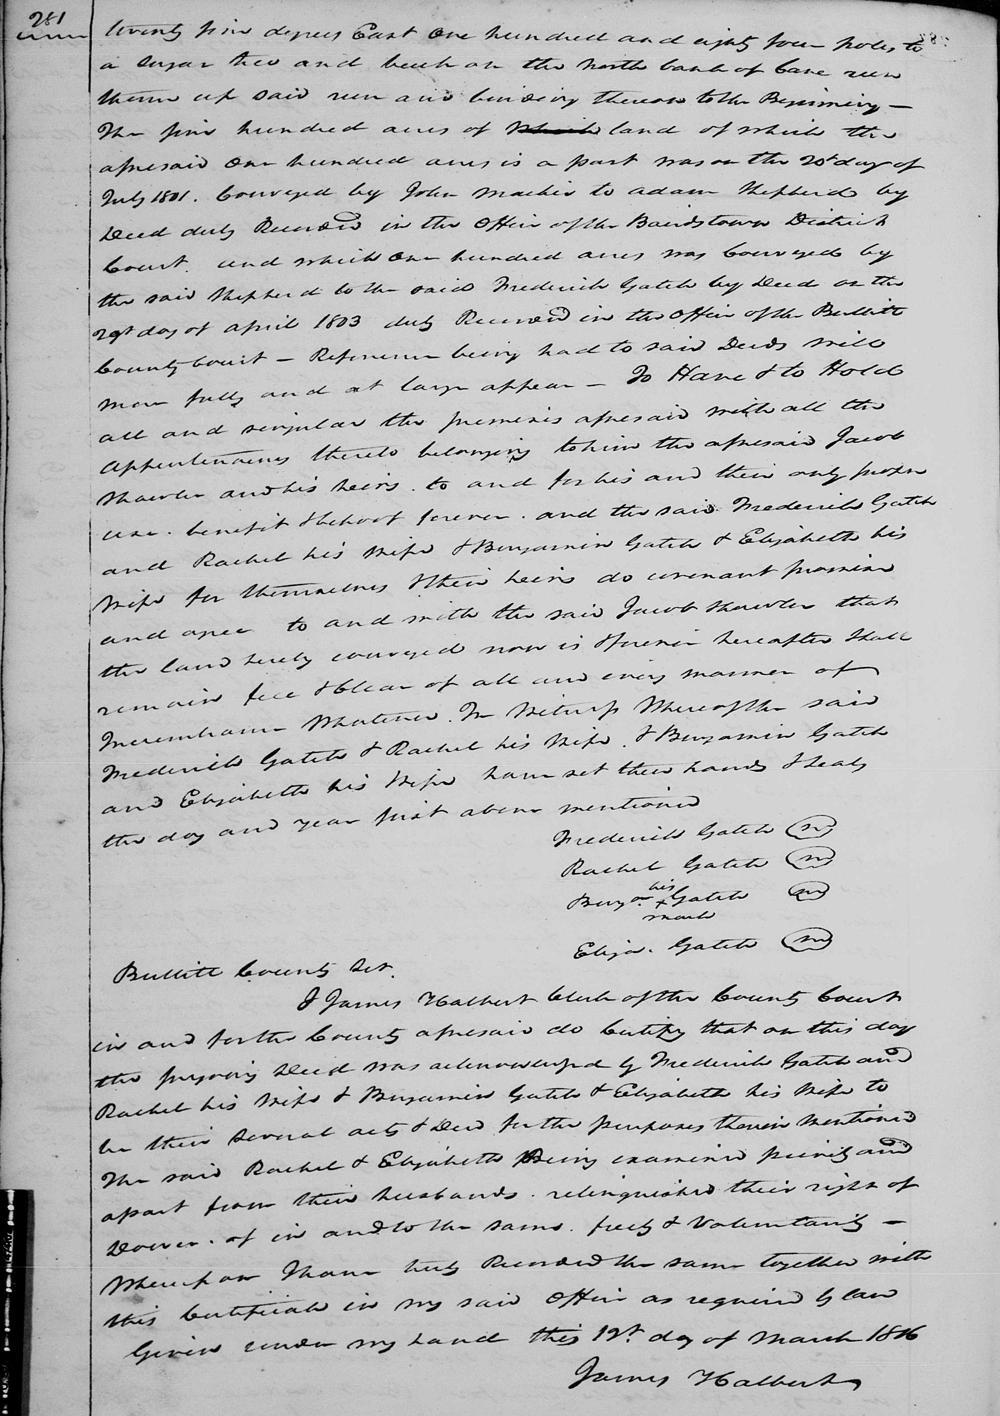 281
twenty five degrees East One hundred and eighty four poles to
a sugar tree and beech on the North bank of Cane run
thence up said run and binding thereon to the Beginning —
The five hundred acres of which land of which the
aforesaid One hundred acres is a part was on the 20th day of
July 1801. Conveyed by John Mackie to Adam Shepherd by
Deed duly Recorded in the Office of the Bairdstown District
Court. and which One hundred acres was Conveyed by
the said Shepherd to the said Frederick Gatch by Deed on the
day of April 1803 duly Recorded in the Office of the Bullitt
County Court — Reference being had to said Deeds will
more fully and at large appear — To Have & to Hold
all and singular the premises aforesaid with all the
Appurtenances thereto belonging to him the aforesaid Jacob
Shawler and his heirs. to and for his and their only proper
use. benefit & behoof forever. and the said Frederick Gatch
and Rachel his Wife & Benjamin Gatch & Elizabeth his
Wife for themselves & their heirs do covenant promise
and agree to and with the said Jacob Shawler that
the land hereby conveyed now is & forever hereafter shall
remain free & Clear of all and every manner of
Incumbrance Whatever. In Witness Whereof the said
Frederick Gatch & Rachel his Wife, & Benjamin Gatch
and Elizabeth his Wife have set their hands & seals
the day and year first above mentioned
Frederick Gatch
Rachel Gatch
his
Benjn + Gatch
mark
Eliza. Gatch
Bullitt County Sct.
I James Halbert Clerk of the County Court
in and for the County aforesaid do Certify that on this day
the foregoing Deed was acknowledged by Frederick Gatch and
Rachel his Wife & Benjamin Gatch & Elizabeth his Wife to
be their Several acts & Deed for the purposes therein mentioned
The said Rachel & Elizabeth Being examined privily and
apart from their husbands. relinquished their right of
Dower. of in and to the same. freely & Voluntarily —
Whereupon I have duly Recorded the same together with
this Certificate in my said Office as required by law
Given under my hand this 12th day of March 1816
James Halbert